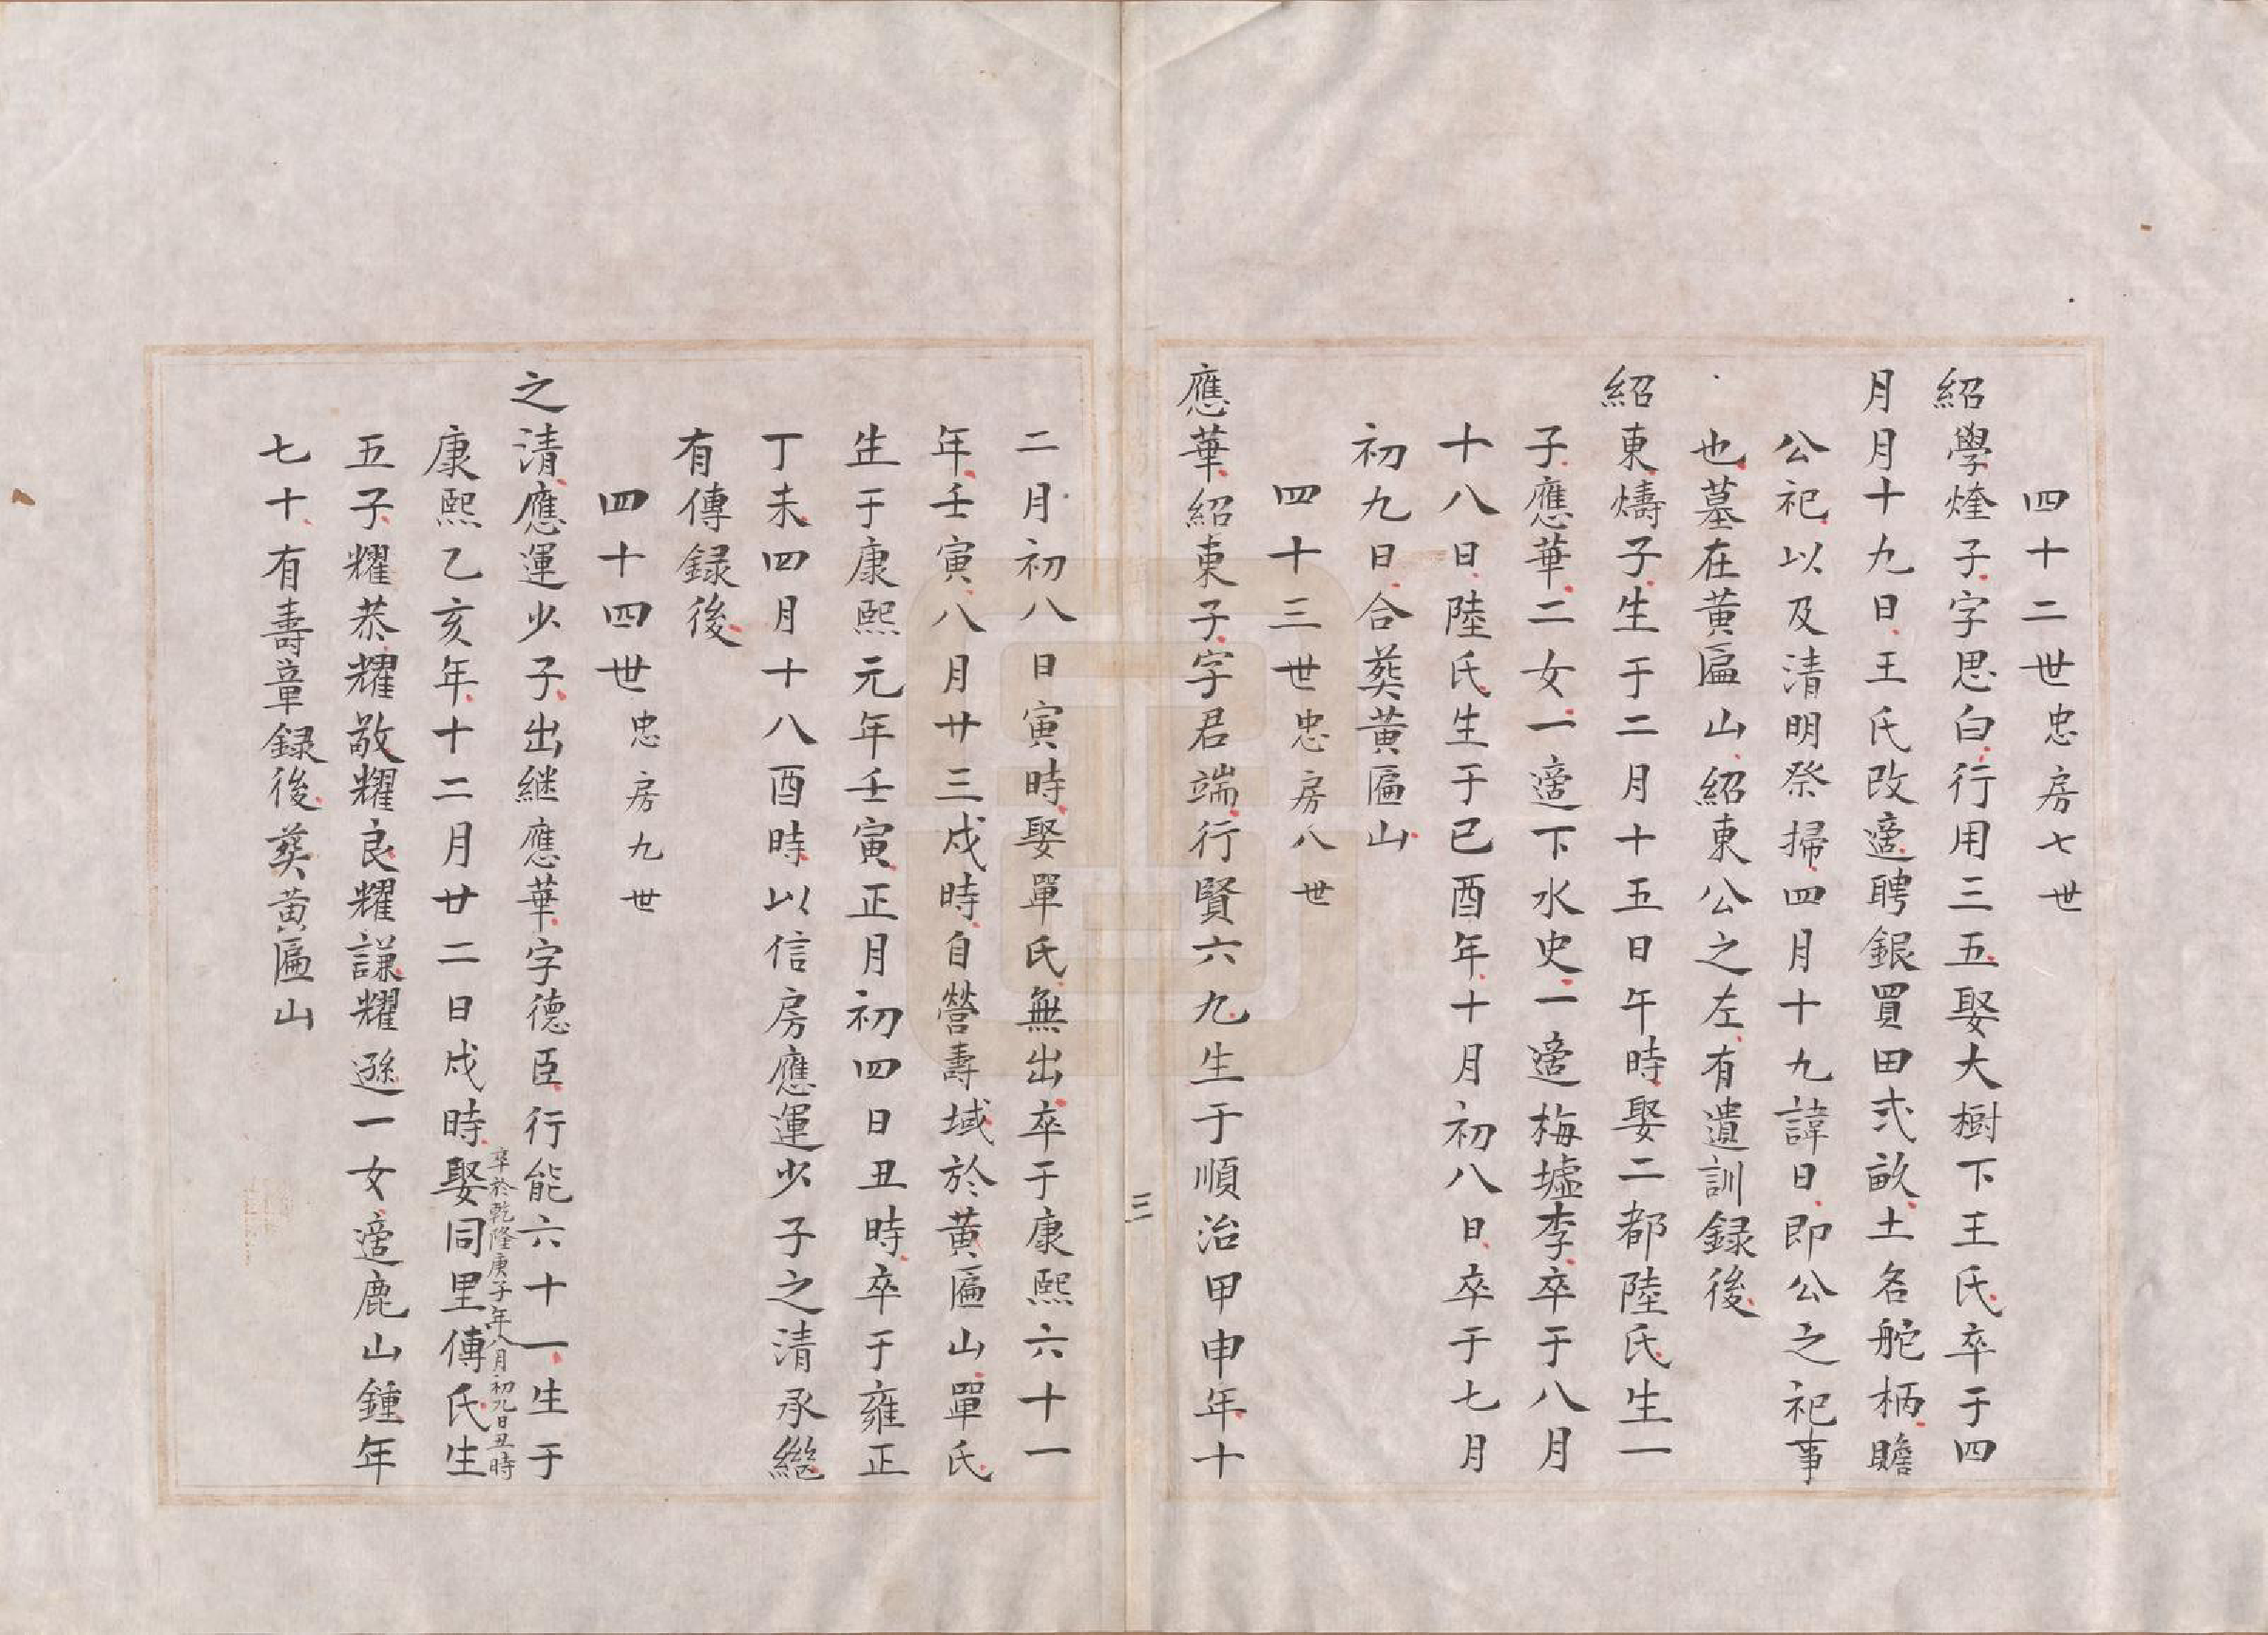 四十二世忠房七世
紹學煃子字思白行用三五娶大樹下王氏卒于四
月月十九日王氏改適聘銀買田弍畝土名舵柄贍
公祀以及清明祭掃四月十九諱日即公之祀事
也墓在黃匾山紹東公之左有遺訓録後
紹東燽子生于二月十五日午時娶二都陸氏生一
子應華二女一適下水史一適梅墟李卒于八月
十八日陸氏生于已酉年十月初八日卒于七月
初九日合葬黃匾山
四十三世忠房八世
應華紹東子字君端行賢六九生于順治甲申年十
三
二月初八日寅時娶單氏無出卒于康熙六十一
年壬寅八月廿三戍時自營壽域於黃匾山單氏
生于康熙元年壬寅正月初四日丑時卒于雍正
丁未四月十八酉時以信房應運少子之清承繼
有傳録後
四十四世忠房九世
之清應運少子出継應華字德臣行能六十一生于
卒於乾隆庚子年八月初九日丑時
康熙乙亥年十二月廿二日戍時娶同里傅氏生
五子耀恭耀敬耀良耀謙耀遜一女適鹿山鍾年
七十有壽章録後葬黃匾山